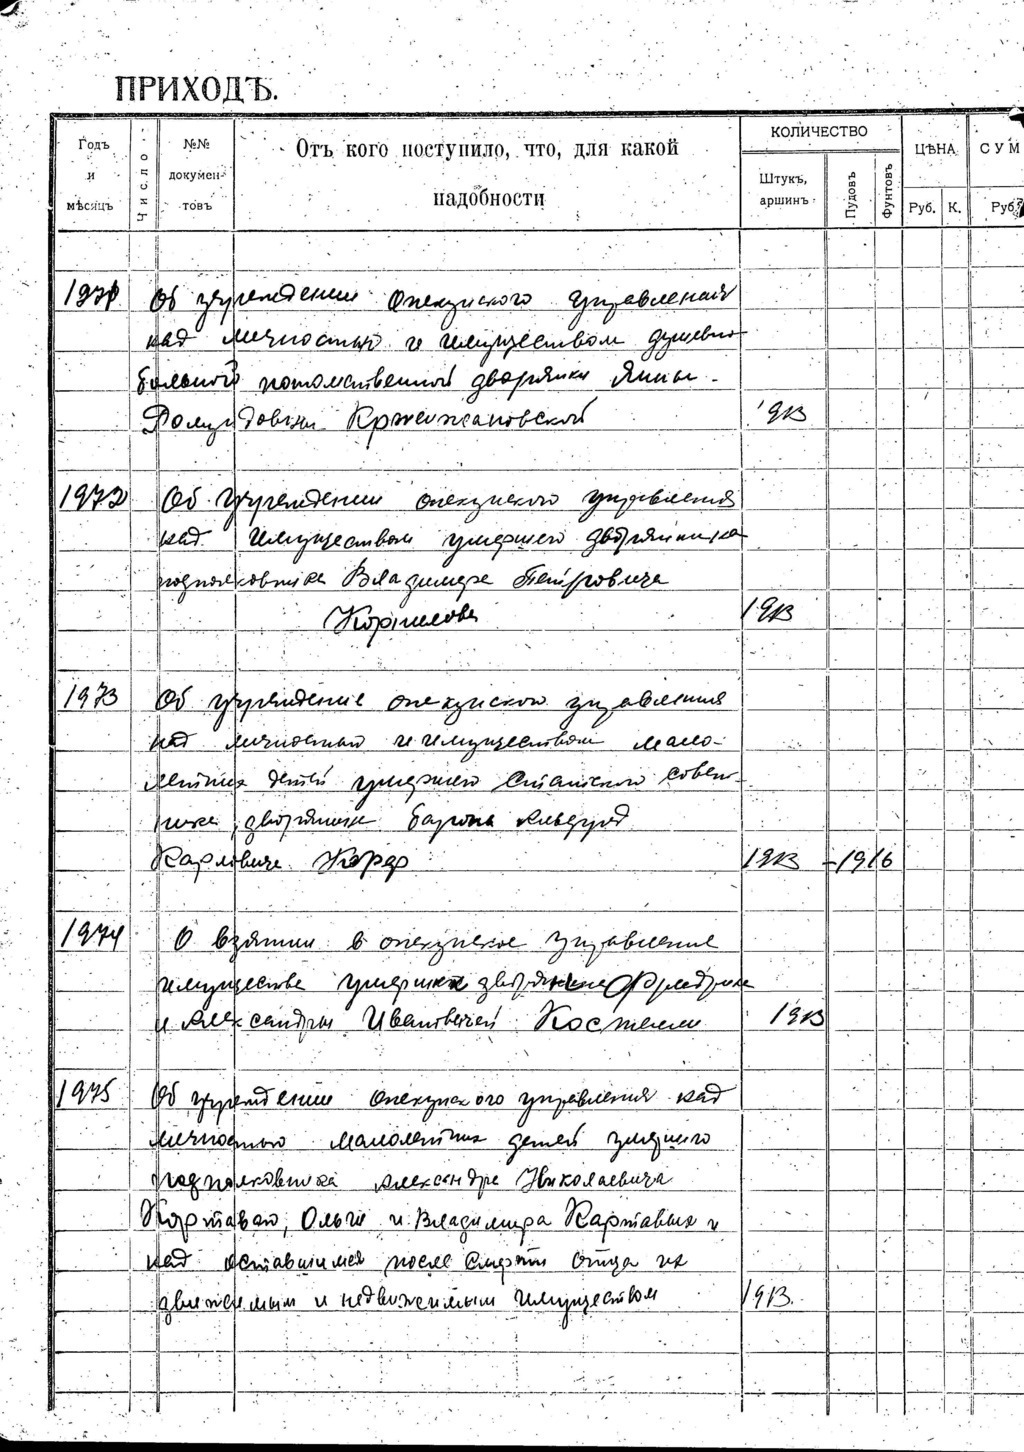 ПРИХОДЪ.
Годъ и мѣсяцъ
Число
№№ докумен-товъ
Отъ кого поступило, что, для какой надобности
КОЛИЧЕСТВО
Штукъ, аршинъ
Пудовъ
Фунтовъ
ЦѢНА
Руб. К.
СУМ
Руб.
1971 Об учреждении Опекунского управления
над личностью и имуществом душевно
больной потомственной дворянки Янины
Ромуальдовны Кржижановской 1913
1972 Об учреждении опекунского управления
над имуществом умершего дворянина
подполковника Владимира Петровича
Корнилова 1913
1973 Об учреждение опекунского управления
над личностью и имуществом мало-
летних детей умершего Статского Совет-
ника, дворянина барона
Карловича Корф 1913 - 1916
1974 О взятии в опекунское управление
имущества умерших дворянина Фридриха
и Александры Ивановичей 1913
1975 Об учреждении опекунского управления над
личностью малолетних детей умершего
подполковника Александра Николаевича
Картаваго, Ольги и Владимира Картавых и
над оставшимся после смерти отца их
движимым и недвижимым имуществом 1913.